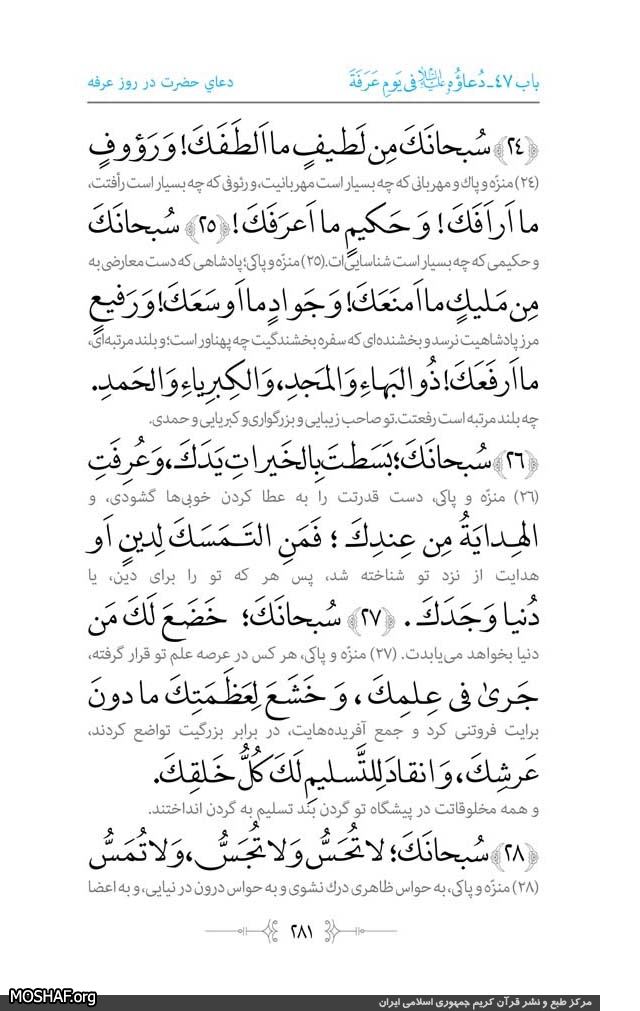 باب ٤٧ـ دُعاؤُهُ عَلَيْهِ السَّلامُ فى يَومِ عَرَفَةَ دعاي حضرت در روز عرفه
﴿٢٤﴾ سُبحانَكَ مِن لَطيفٍ ما اَلطَفَكَ! وَ رَؤوفٍ
(٢٤) منزّه و پاك و مهربانى كه چه بسيار است مهربانيت، و رئوفى كه چه بسيار است رأفتت،
ما اَراَفَكَ! وَ حَكيمٍ ما اَعرَفَكَ! ﴿٢٥﴾ سُبحانَكَ
و حكيمى كه چه بسيار است شناسايى‌ات. (٢٥) منزّه و پاكى؛ پادشاهى كه دست معارضى به
مِن مَليكٍ ما اَمنَعَكَ! وَ جَوادٍ ما اَوسَعَكَ! وَ رَفيعٍ
مرز پادشاهيت نرسد و بخشنده‌اى كه سفره بخشندگيت چه پهناور است؛ و بلند مرتبه‌اى،
ما اَرفَعَكَ! ذُو البَهاءِ وَ المَجدِ، وَ الكِبرِياءِ وَ الحَمدِ.
چه بلند مرتبه است رفعتت. تو صاحب زيبايى و بزرگوارى و كبريايى و حمدى.
﴿٢٦﴾ سُبحانَكَ؛ بَسَطتَ بِالخَيراتِ يَدَكَ، وَ عُرِفَتِ
(٢٦) منزّه و پاكى، دست قدرتت را به عطا كردن خوبى‌ها گشودى، و
الهِدايَةُ مِن عِندِكَ ؛ فَمَنِ التَمَسَكَ لِدينٍ اَو
هدايت از نزد تو شناخته شد، پس هر كه تو را براى دين، يا
دُنيا وَجَدَكَ . ﴿٢٧﴾ سُبحانَكَ؛ خَضَعَ لَكَ مَن
دنيا بخواهد مى‌يابدت. (٢٧) منزّه و پاكى، هر كس در عرصه علم تو قرار گرفته،
جَرىٰ فى عِلمِكَ ، وَ خَشَعَ لِعَظَمَتِكَ ما دونَ
برايت فروتنى كرد و جمع آفريده‌هايت، در برابر بزرگيت تواضع كردند،
عَرشِكَ، وَ انقادَ لِلتَّسليمِ لَكَ كُلُّ خَلقِكَ.
و همه مخلوقاتت در پيشگاه تو گردن بَند تسليم به گردن انداختند.
﴿٢٨﴾ سُبحانَكَ؛ لا تُحَسُّ وَ لا تُجَسُّ، وَ لا تُمَسُّ
(٢٨) منزّه و پاكى، به حواس ظاهرى درك نشوى و به حواس درون در نيايى، و به اعضا
٢٨١
MOSHAF.org مركز طبع و نشر قرآن كريم جمهورى اسلامى ايران